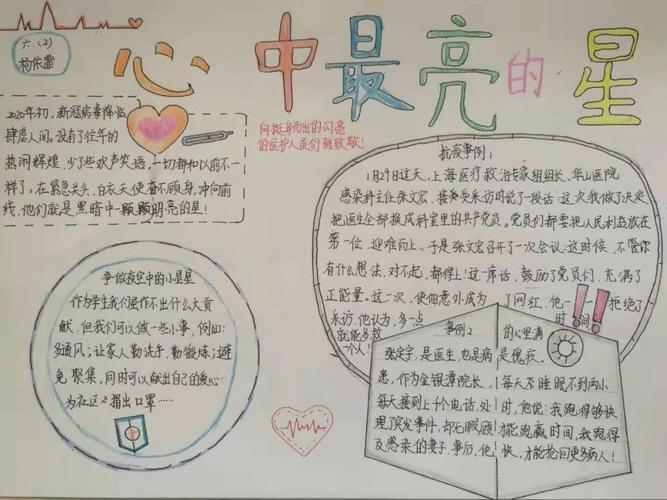 心中最亮的星
六.(2)
杨依霏
2020年初，新冠病毒降临
肆虐人间。没有了往年的
热闹辉煌，少了些欢声笑语，一切都和以前不一
样了，在紧急关头，白衣天使奋不顾身，冲向前
线，他们就是黑暗中一颗颗明亮的星！
向挺身而出的闪亮
的医护人员们致敬！
抗疫事例1
1月29日这天，上海医疗救治专家组组长，华山医院
感染科主任张文宏，接受采访时说了一段话：这次我做了决定，
把医生全部换成科室里的共产党员。党员们都要把人民利益放在
第一位，迎难而上。于是张文宏召开了一次会议：这时候，不管你
有什么想法，对不起，都得上！这一席话，鼓励了党员们，充满了
正能量。这一次，使他意外成为了网红，他一时间拒绝了
采访，他认为，多一点
就能多救
一个人！
争做夜空中的小星星
作为学生我们虽作不出什么大贡
献，但我们可以做一些小事，例如：
多通风；让家人勤洗手，勤锻炼；避
免聚集，同时可以献出自己的爱心：
为社区捐出口罩……
事例2
张定宇，是医生，也是病
患，作为金银潭院长，
每天接到上千个电话，处
理了突发事件，却无暇顾
及感染的妻子，事后，他
的心里满
是愧疚。
每天至睡眠不到两小
时，他说：我跑得够快
才能跑赢时间，我跑得
快，才能抢回更多病人！